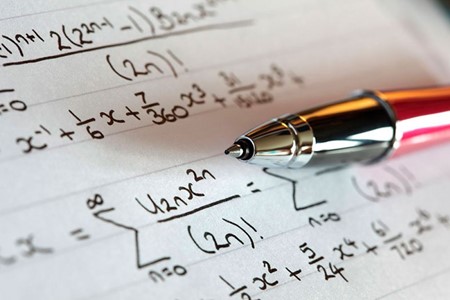 1)ⁿ⁺¹ 2(2²ⁿ⁻¹ − 1) B₂ₙx
(2n)!
x⁻¹ + 1/6 x + 7/360 x³ +
∞
x = ∑ U₂ₙx²ⁿ / (2n)! = ∑ (2n)!
n=0 n=0
1/2 x² + 5/24 x⁴ + 61/720 x⁶